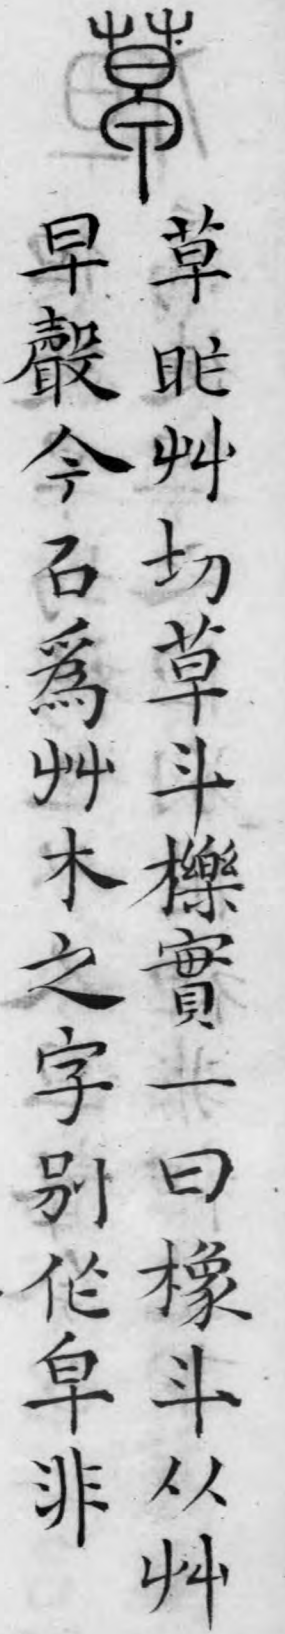 草
草昨艸切草斗櫟實一曰橡斗从艸
早聲今石爲艸木之字別作皁非